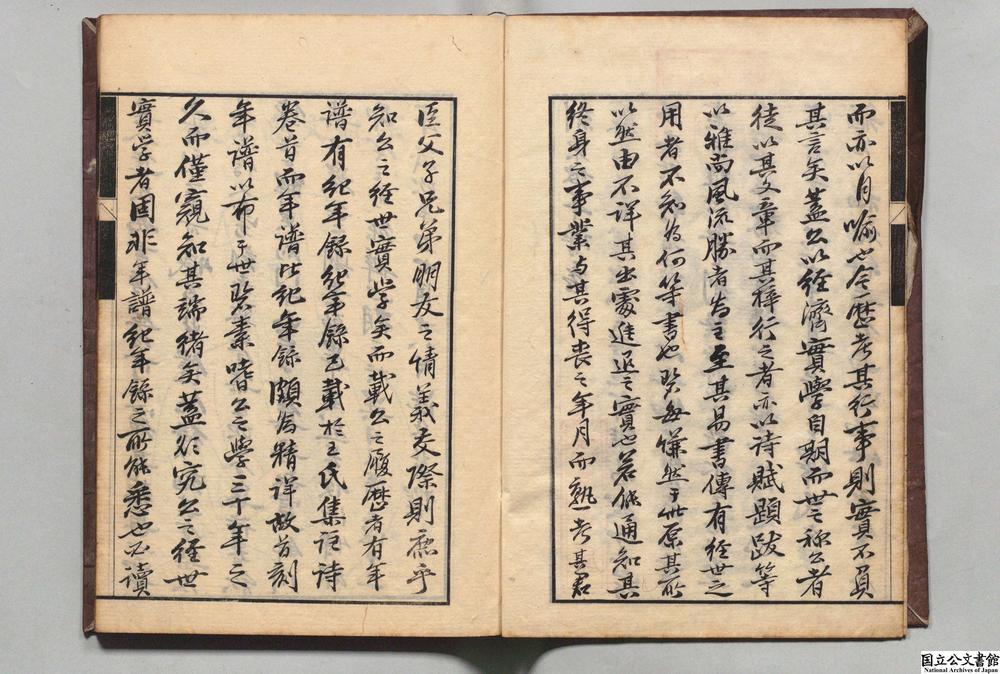 而亦以月喩也今歴考其行事則實不負
其言矣蓋公以経濟實學自期而世之称公者
徒以其文章而其梓行之者亦以詩賦題跋等
以雅尚風流勝者為主至其易書傳有経世之
用者不知為何等書也毎慊然于此原其所
以然由不詳其出處進退之實也若能通知其
終身之事業与其得喪之年月而熟考其君
臣父子兄弟朋友之情義交際則庶乎
知公之経世實学矣而載公之履歴者有年
譜有紀年録紀年録已載於王氏集注詩
巻首而年譜比紀年録頗為精詳故首刻
年譜以布于世素嗜公之學三十年之
久而僅窺知其端緒矣蓋欲究公之経世
實学者固非年譜紀年録之所能悉也不讀
国立公文書館
National Archives of Japan